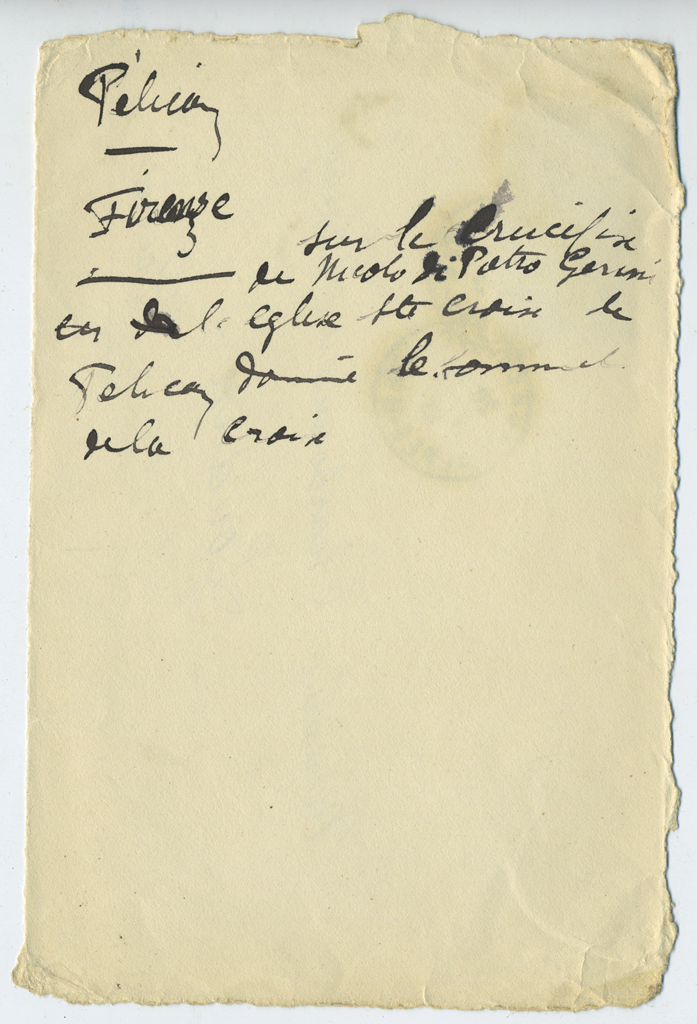 Pélican
Firenze
sur le Crucifix
de Nicolo di Petro Gerini
en l'eglise Ste Croix le
Pelican domine le sommet
de la Croix